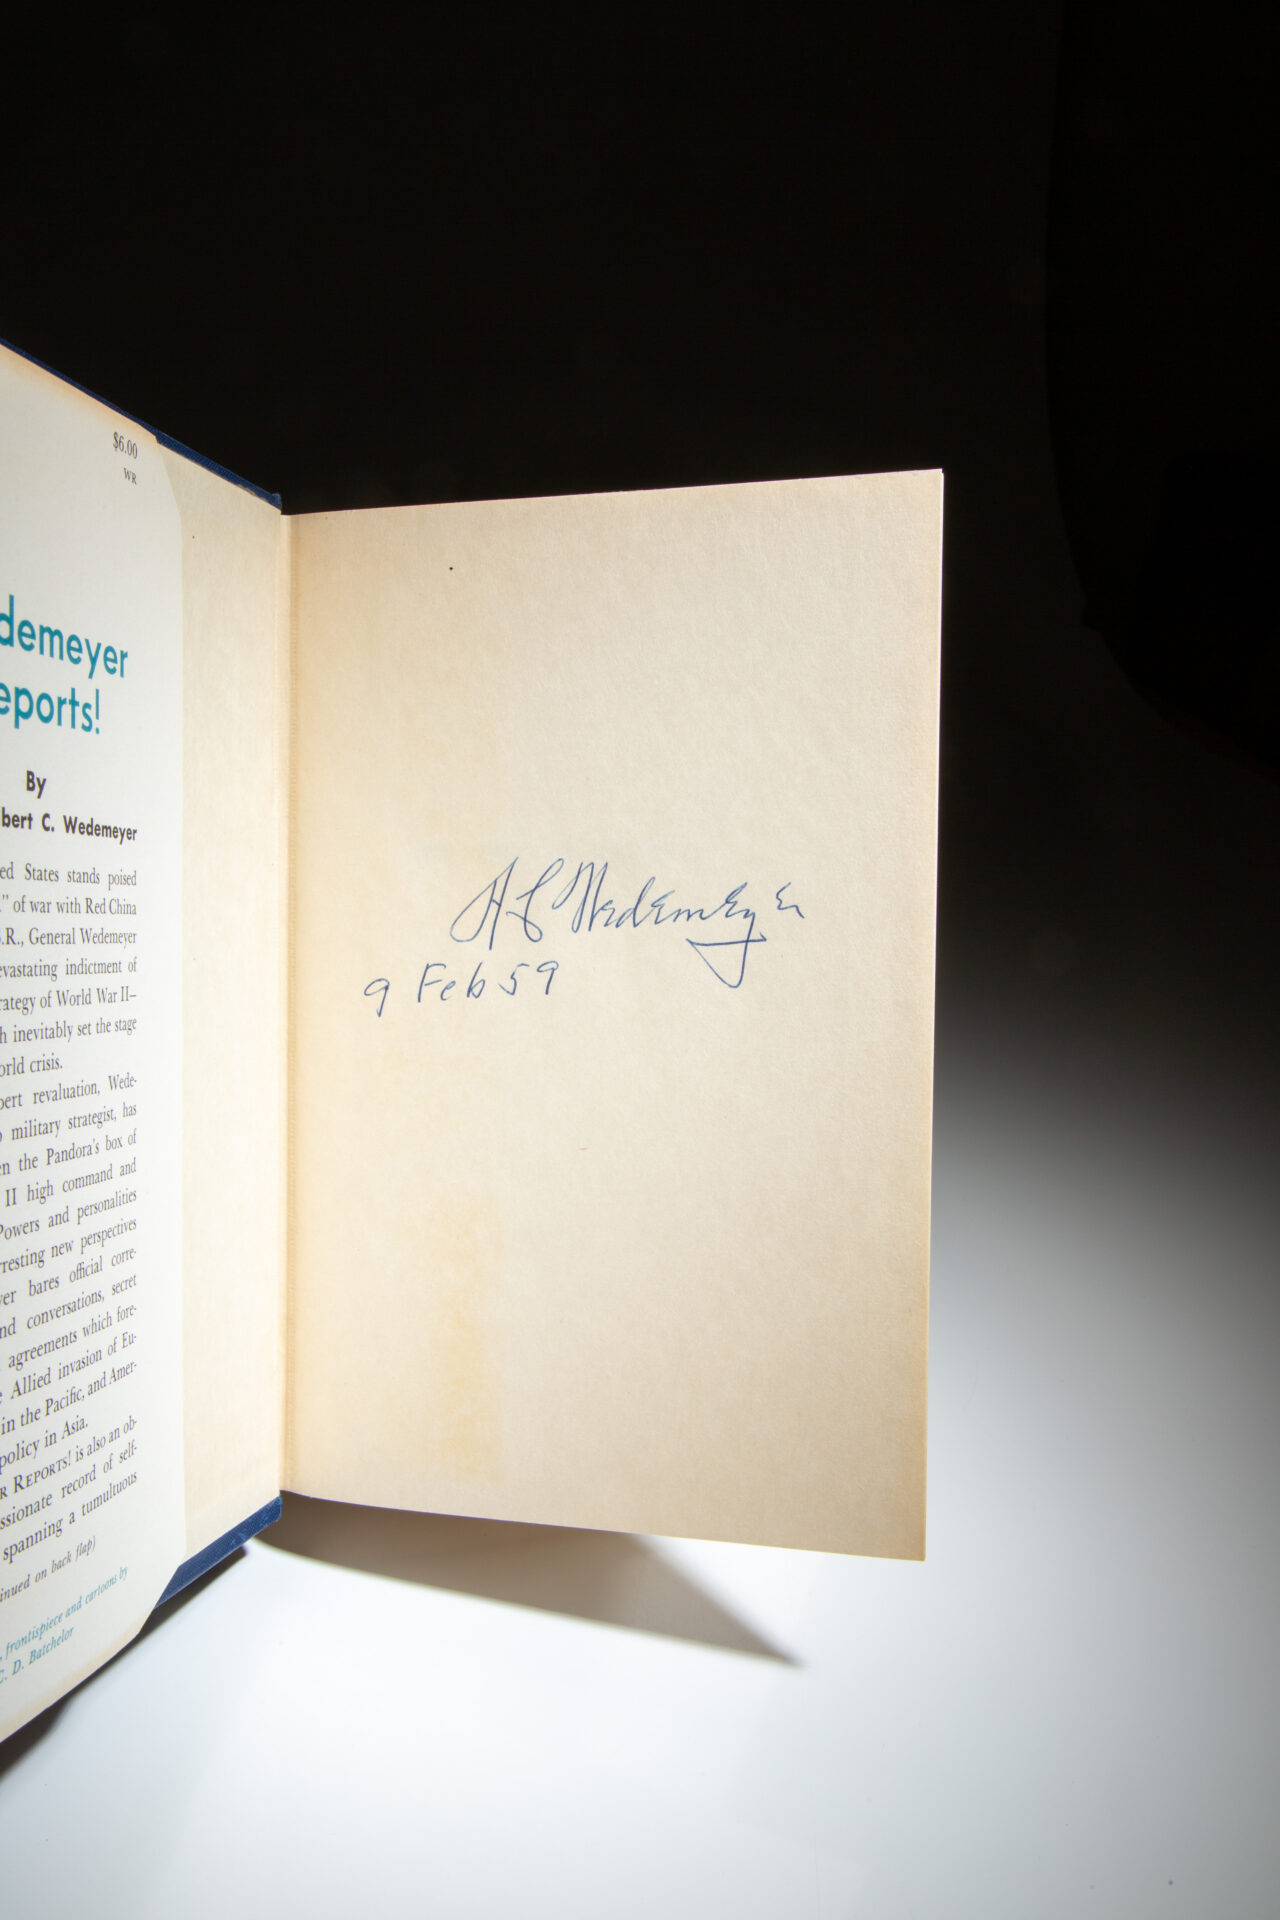 $6.00
WR
demeyer
eports!
By
bert C. Wedemeyer
ed States stands poised
” of war with Red China
.R., General Wedemeyer
evastating indictment of
rategy of World War II–
h inevitably set the stage
orld crisis.
pert revaluation, Wede-
military strategist, has
en the Pandora's box of
II high command and
Powers and personalities
rresting new perspectives
yer bares official corre-
nd conversations, secret
agreements which fore-
e Allied invasion of Eu-
in the Pacific, and Amer-
policy in Asia.
R REPORTS! is also an ob-
ssionate record of self-
spanning a tumultuous
inued on back flap)
, frontispiece and cartoons by
C. D. Batchelor
A C Wedemeyer
9 Feb 59